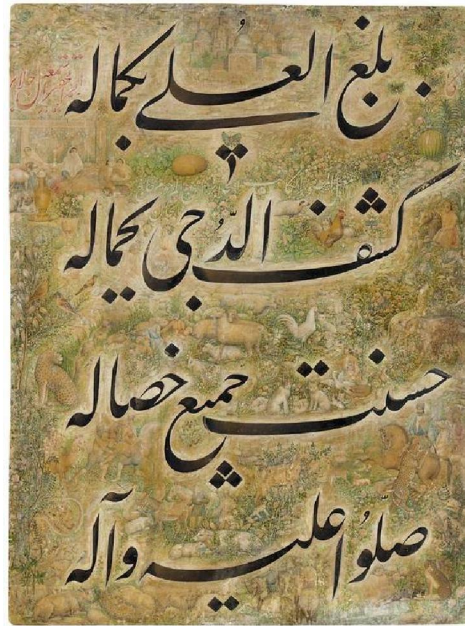 بلغ العلے بکماله
کشف الدّجی بجماله
حسنت جمیع خصاله
صلّوُا علیه وآله